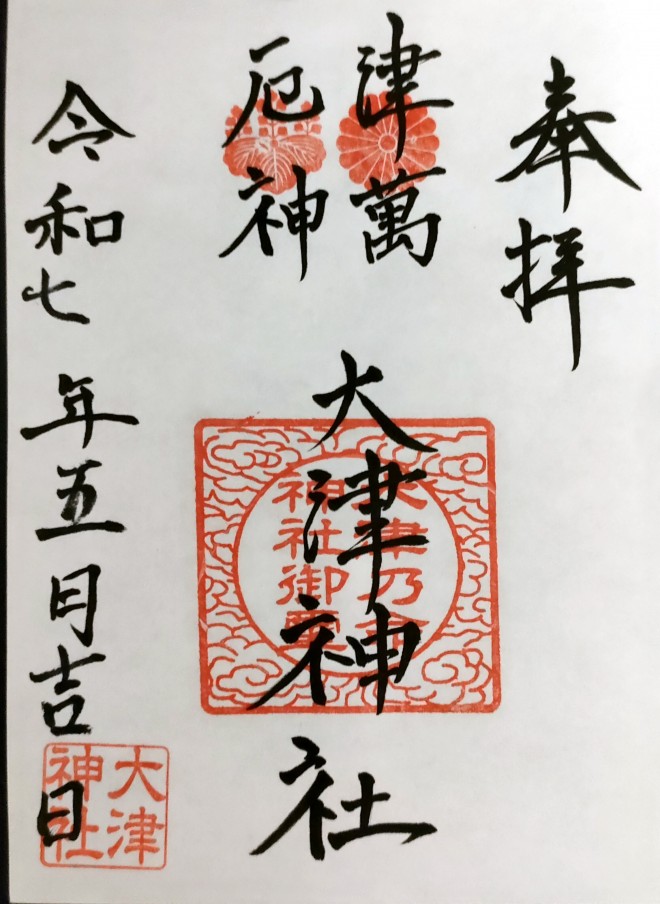 奉拝
津萬
厄神
大津神社
大津乃命
神社御璽
令和七年五月吉日
大津
神社